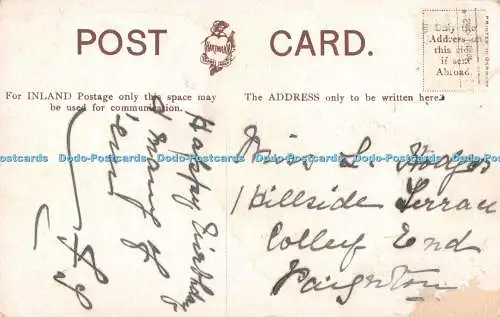 POST CARD.
Only the
Address on
this side
if sent
Abroad.
PRINTED IN GERMANY
For INLAND Postage only this space may
be used for communication.
The ADDRESS only to be written here.
Happy Birthday
& many of
'em
Miss L.
1 Hillside Terrace
College End
Paignton
Dodo-Postcards Dodo-Postcards Dodo-Postcards Dodo-Postcards Dodo-Postcards